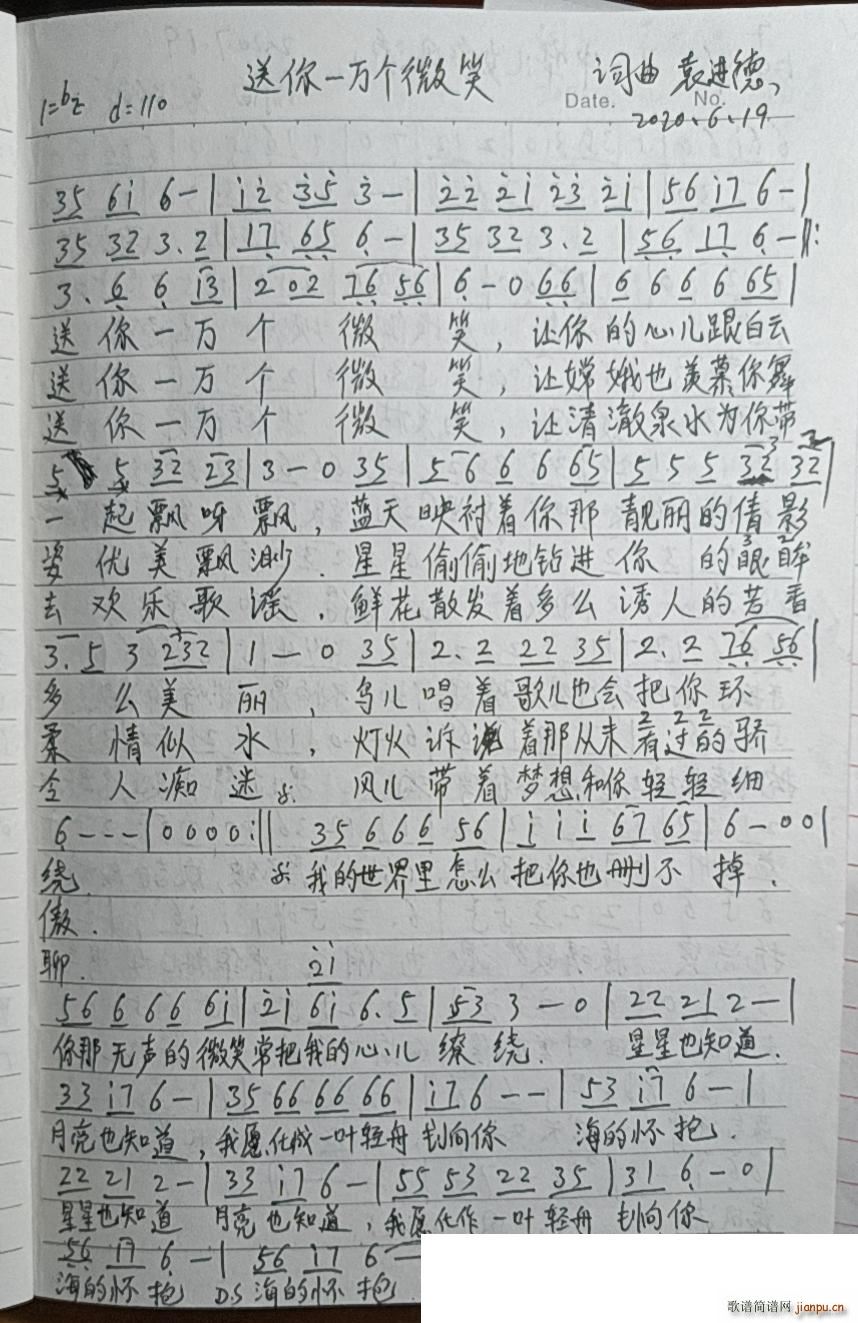 送你一万个微笑 词曲 袁进德、
Date. No.
1=bE d=110 2020.6.19
35 6i 6-| i2 35 3-| 22 2i 23 2i| 56 i7 6-|
35 32 3.2| 17 65 6-| 35 32 3.2| 56 17 6-‖:
3.6 6 13| 2 02 76 56| 6-0 66| 6 6 6 6 65|
送你一万个 微 笑，让你的心儿跟白云
送你一万个 微 笑，让嫦娥也羡慕你舞
送你一万个 微 笑，让清澈泉水为你带
5 5 32 23| 3-0 35| 56 6 6 65| 5 5 5 32 32|
一起飘呀飘，蓝天映衬着你那靓丽的倩影
姿优美飘渺．星星偷偷地钻进你 的眼眸
去欢乐歌谣．鲜花散发着多么诱人的芳香
3.5 3 232| 1-0 35| 2.2 22 35| 2.2 76 56|
多么美丽，鸟儿唱着歌儿也会把你环
柔情似水，灯火诉说着那从未有过的骄
令人痴迷 风儿带着梦想和你轻轻细
6---|0000:‖ 35 6 6 6 56| i i i 67 65| 6-00|
绕． 我的世界里怎么把你也删不掉．
傲．
聊． 2i
56 6 6 6 6i| 2i 6i 6.5| 53 3-0| 22 21 2-|
你那无声的微笑常把我的心儿缭绕． 星星也知道．
33 i7 6-| 35 66 66 66| i7 6--| 53 i7 6-|
月亮也知道，我愿化成一叶轻舟划向你 海的怀抱．
22 21 2-| 33 i7 6-| 55 53 22 35| 31 6-0|
星星也知道 月亮也知道，我愿化作一叶轻舟划向你
56 17 6-| 56 17 6-
海的怀抱 DS 海的怀抱
歌谱简谱网 jianpu.cn